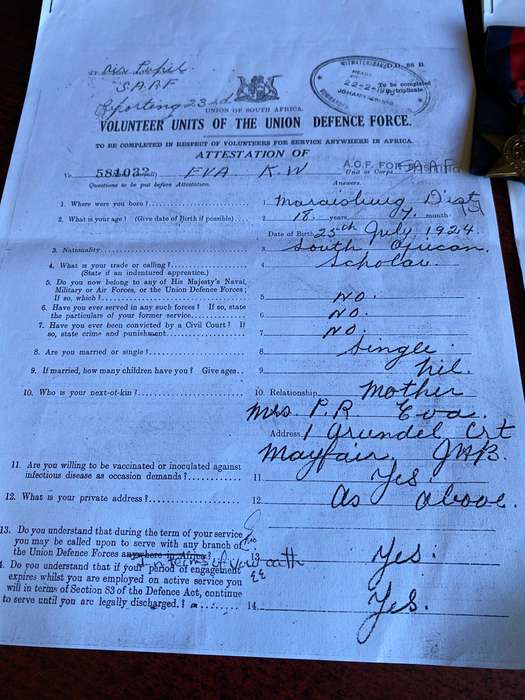 Air Pupil
S.A.A.F
Reporting 23rd
WITWATERSRAND
22-2-19
JOHANNESBURG
D.D. 86 B.
To be completed
in triplicate.
UNION OF SOUTH AFRICA.
VOLUNTEER UNITS OF THE UNION DEFENCE FORCE.
TO BE COMPLETED IN RESPECT OF VOLUNTEERS FOR SERVICE ANYWHERE IN AFRICA.
ATTESTATION OF
581032 EVA K.W A.C.F. FOR S.A.A.F.
Unit or Corps
Questions to be put before Attestation. Answers.
1. Where were you born? 1. Maraisburg Dist
2. What is your age? (Give date of Birth if possible) 2. 18 years 7 months
Date of Birth 25th July 1924
3. Nationality 3. South African
4. What is your trade or calling? 4. Scholar
(State if an indentured apprentice.)
5. Do you now belong to any of His Majesty's Naval,
Military or Air Forces, or the Union Defence Forces;
If so, which? 5. NO.
6. Have you ever served in any such forces? If so, state
the particulars of your former service 6. NO.
7. Have you ever been convicted by a Civil Court? If
so, state crime and punishment 7. NO.
8. Are you married or single? 8. Single.
9. If married, how many children have you? Give ages 9. Nil.
10. Who is your next-of-kin? 10. Relationship Mother
Mrs. P. R. Eva.
Address 1 Grundel Crt
Mayfair, JHB.
11. Are you willing to be vaccinated or inoculated against
infectious disease as occasion demands? 11. Yes.
12. What is your private address? 12. As above.
13. Do you understand that during the term of your service
you may be called upon to serve with any branch of
the Union Defence Forces anywhere in Africa? 13. Yes.
in terms of your oath
4. Do you understand that if your period of engagement
expires whilst you are employed on active service you
will in terms of Section 83 of the Defence Act, continue
to serve until you are legally discharged? 14. Yes.